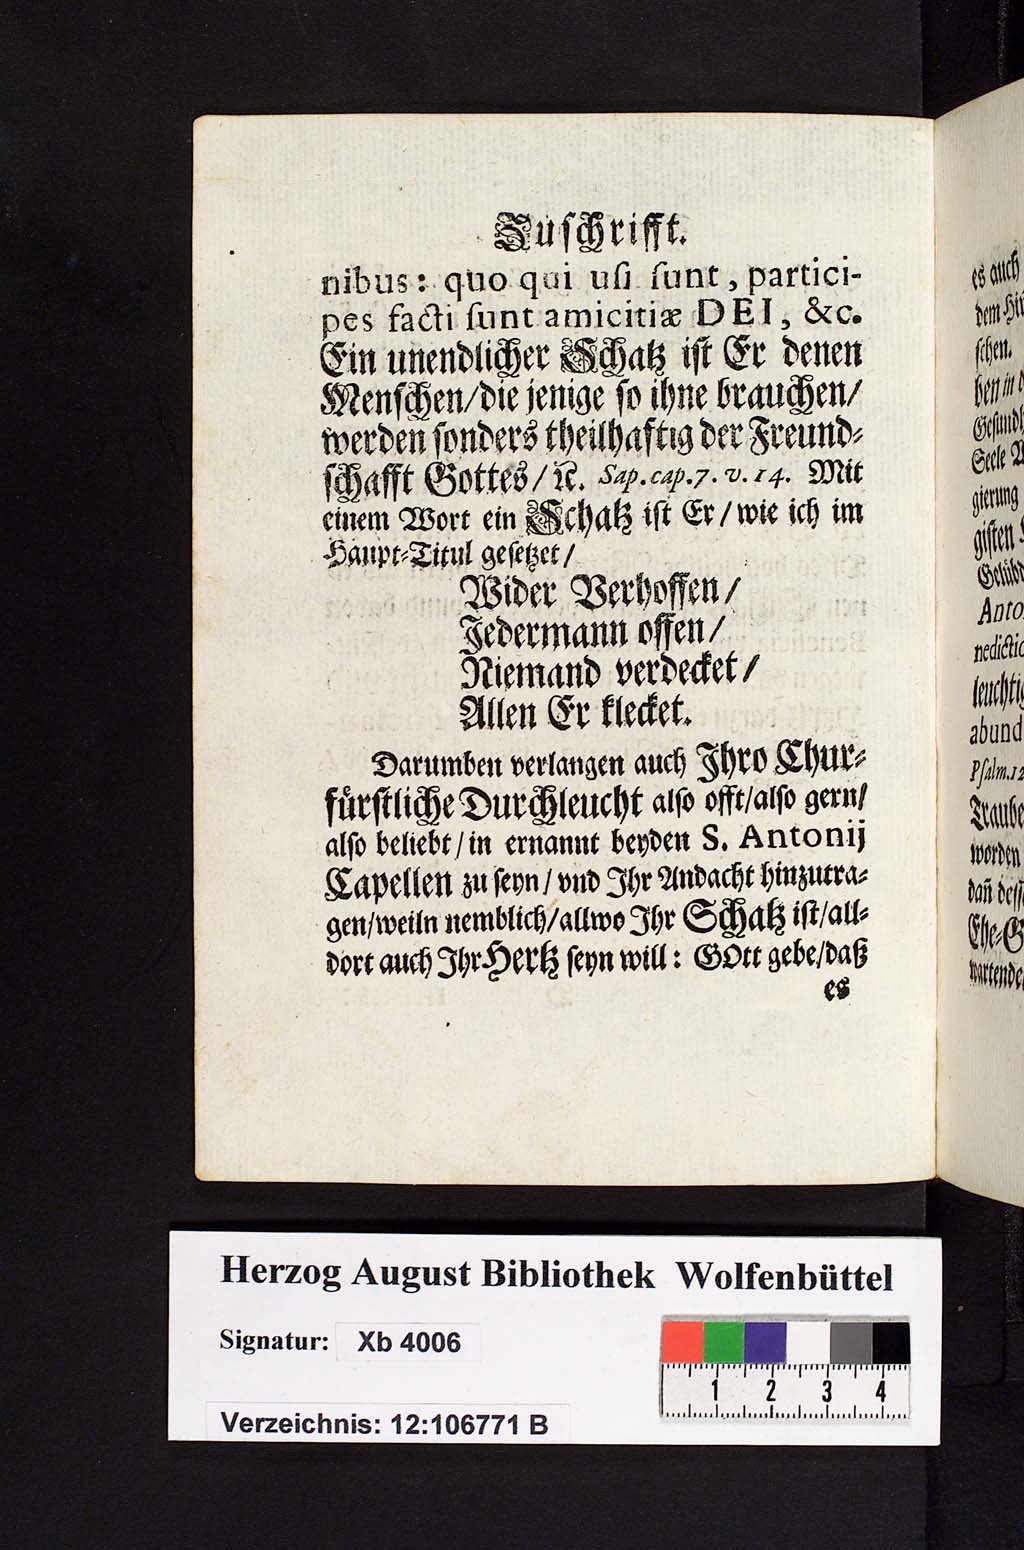 Zuschrifft.
nibus: quo qui usi sunt, partici-
pes facti sunt amicitiæ DEI, &c.
Ein unendlicher Schatz ist Er denen
Menschen/die jenige so ihne brauchen/
werden sonders theilhaftig der Freund-
schafft Gottes/ ꝛc. Sap. cap. 7. v. 14. Mit
einem Wort ein Schatz ist Er/ wie ich im
Haupt-Titul gesetzet/
Wider Verhoffen/
Jedermann offen/
Niemand verdecket/
Allen Er klecket.
Darumben verlangen auch Ihro Chur-
fürstliche Durchleucht also offt/also gern/
also beliebt/in ernannt beyden S. Antonij
Capellen zu seyn/ vnd Ihr Andacht hinzutra-
gen/weiln nemblich/allwo Ihr Schatz ist/all-
dort auch Ihr Hertz seyn will: GOtt gebe/daß
es
es auch
dem
schen.
ben in
Seele
gierung
gisten
Anto
nedictio
leuchtig
abund
Psalm. 12
Traube
worden
dañ
Ehe-G
wartende
Herzog August Bibliothek Wolfenbüttel
Signatur: Xb 4006
1 2 3 4
Verzeichnis: 12:106771 B